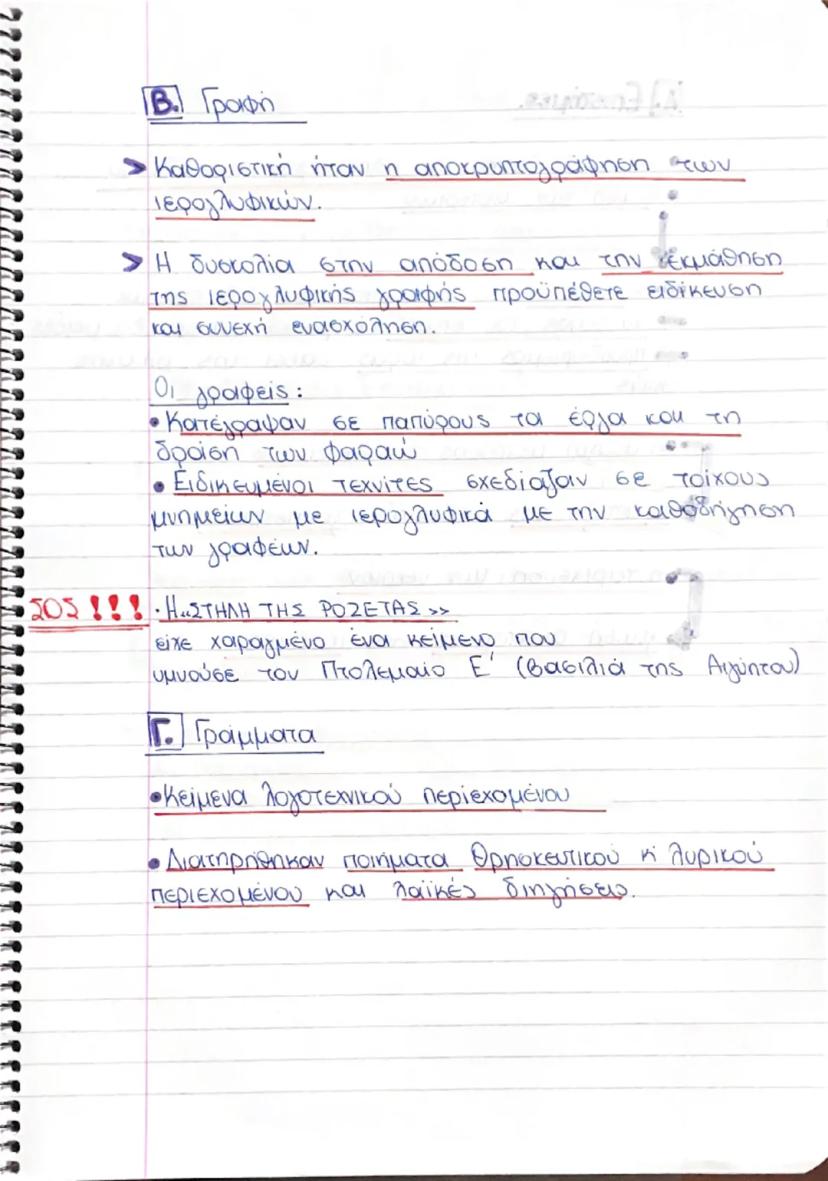 Β. Γραφή
> Καθοριστική ήταν η αποκρυπτογράφηση των
ιερογλυφικών.
> Η δυσκολία στην απόδοση και την εκμάθηση
της ιερογλυφικής γραφής προϋπέθετε ειδίκευση
και συνεχή ενασχόληση.
Οι γραφείς:
• Κατέγραψαν σε παπύρους τα έργα και τη
δράση των φαραώ
• Ειδικευμένοι τεχνίτες σχεδίαζαν σε τοίχους
μνημείων με ιερογλυφικά με την καθοδήγηση
των γραφέων.
ΣΟΣ !!! · Η «ΣΤΗΛΗ ΤΗΣ ΡΟΖΕΤΑΣ»
είχε χαραγμένο ένα κείμενο που
υμνούσε τον Πτολεμαίο Ε' (βασιλιά της Αιγύπτου)
Γ. Γράμματα
• Κείμενα λογοτεχνικού περιεχομένου
• Διατηρήθηκαν ποιήματα θρησκευτικού κ' λυρικού
περιεχομένου και λαϊκές διηγήσεις.